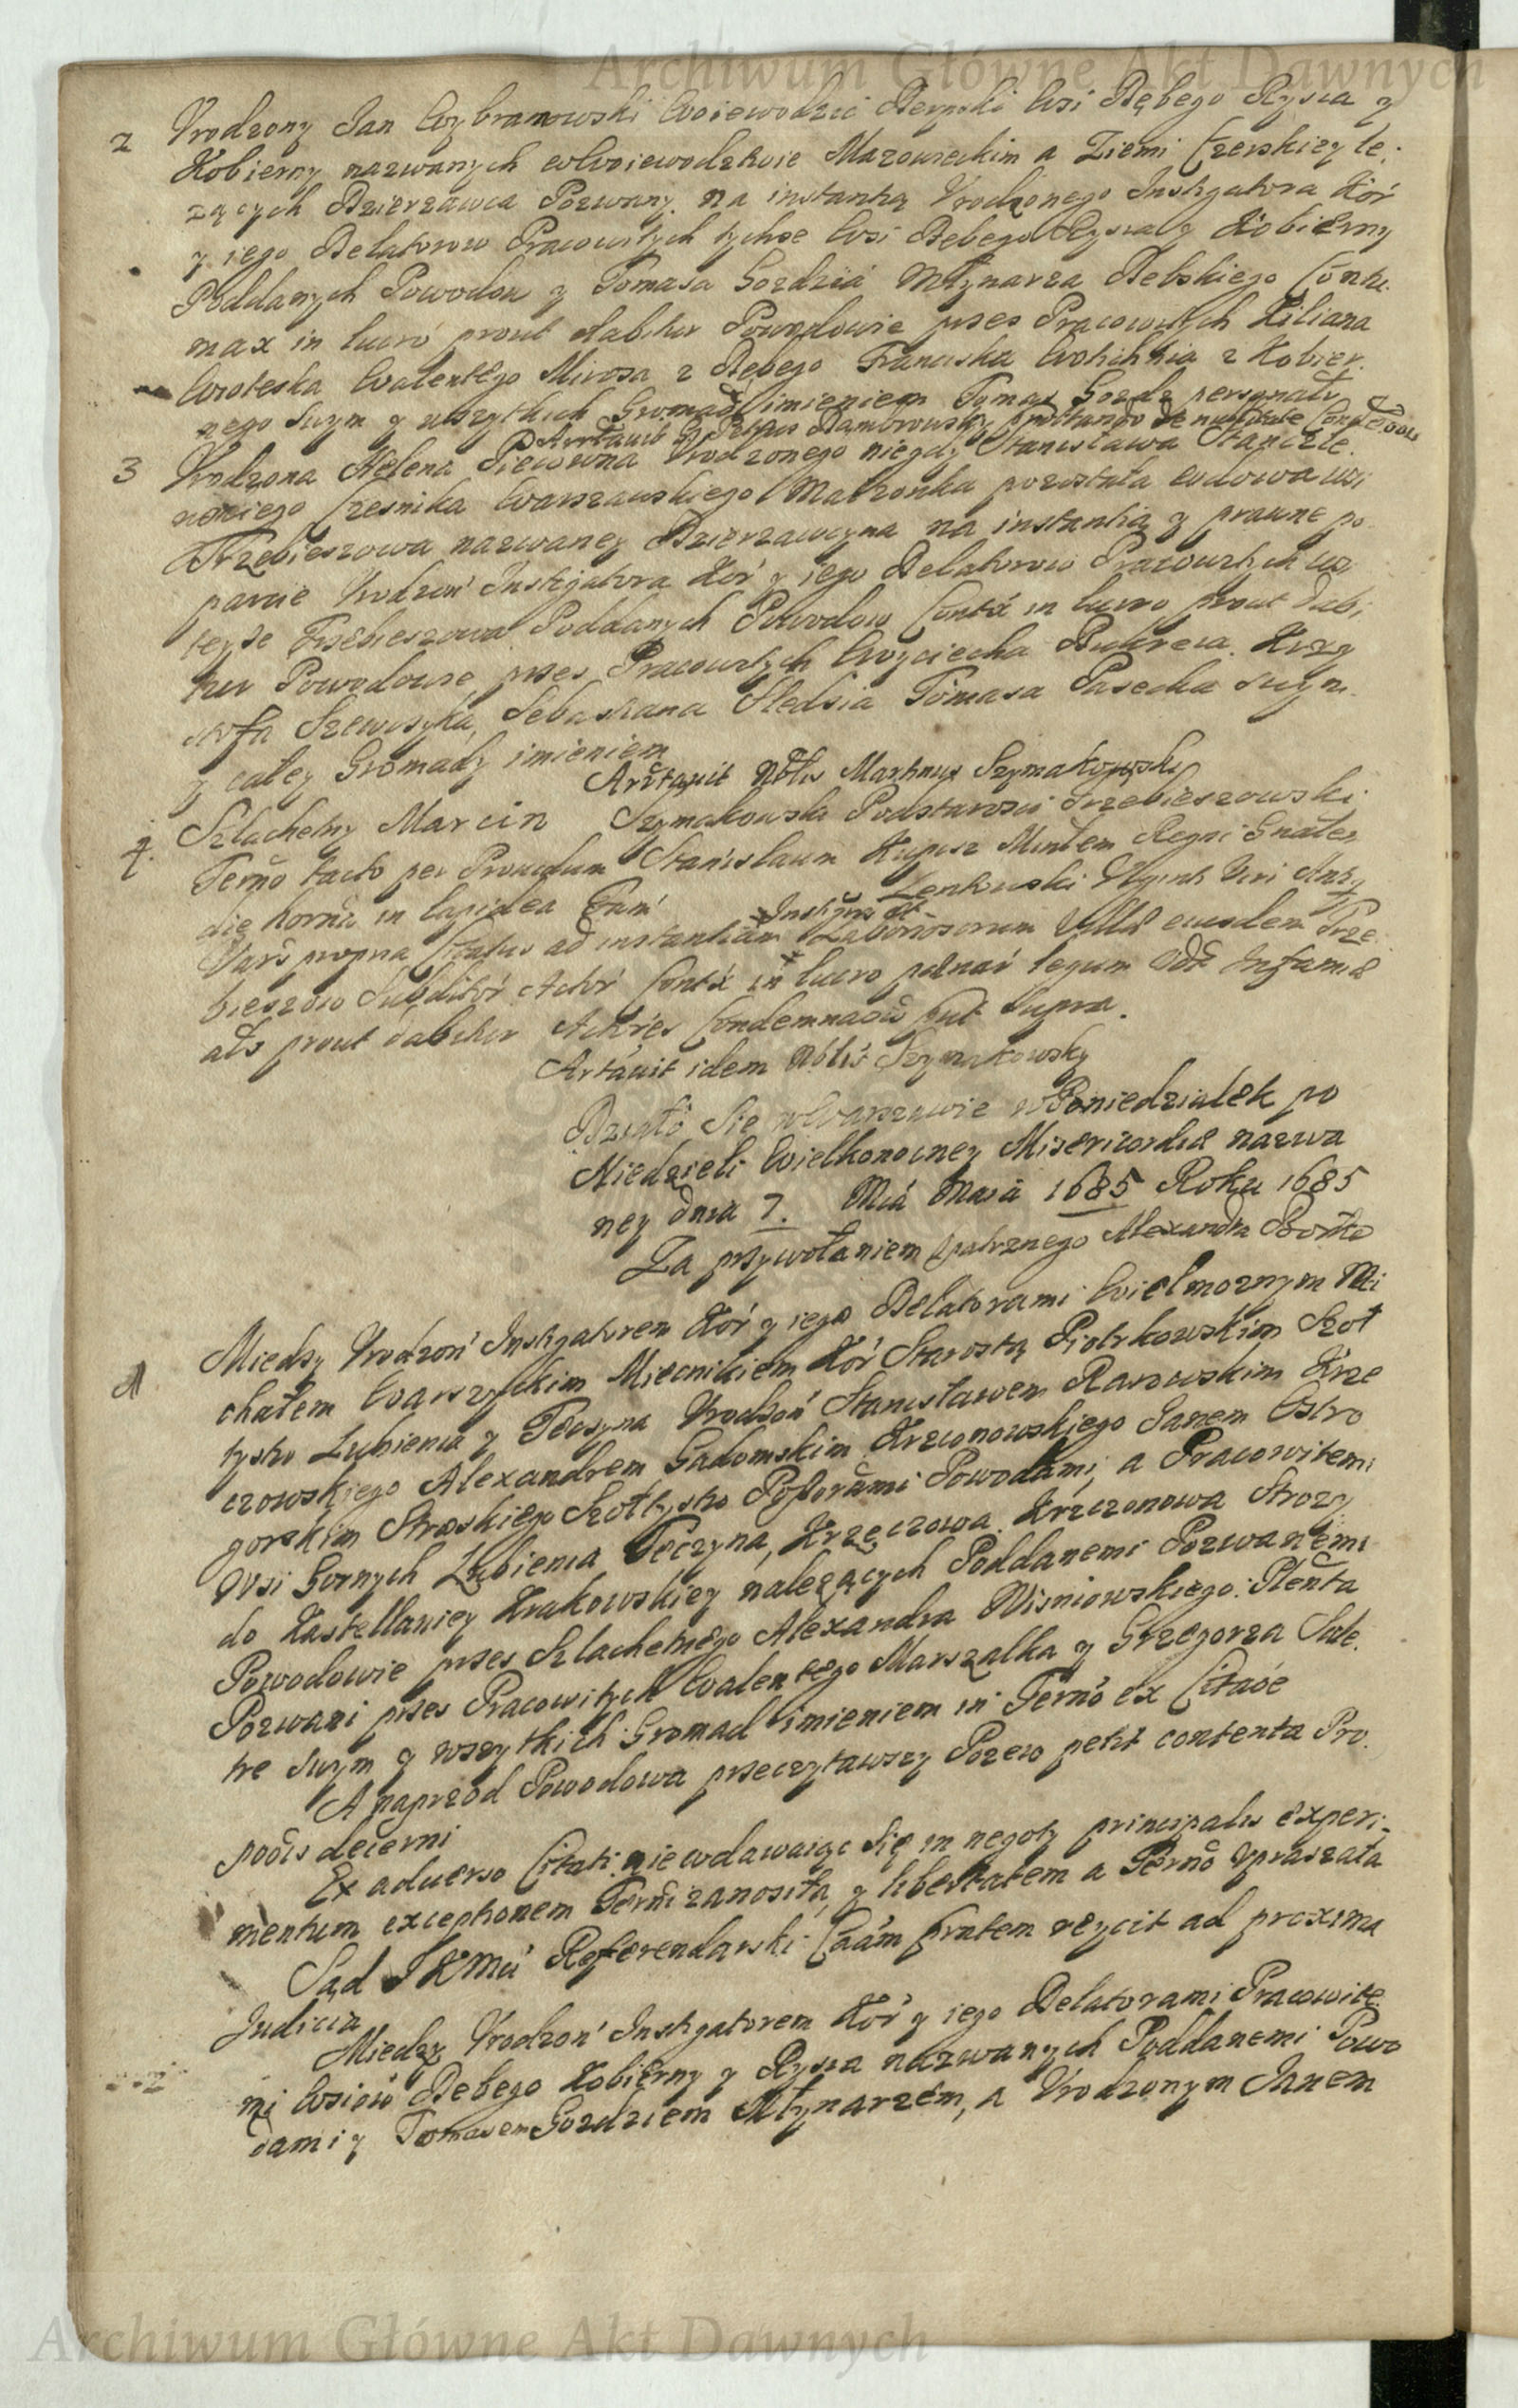 Archiwum Główne Akt Dawnych
2 Vrodzony Jan Wybranowski Woiewodzic Wsi Dębego Rysia y
Kobierny nazwanych wWoiewodztwie Mazowieckim a Ziemi Czerskiey le,
zących Dzierzawca Pozwany. na instantią Vrodzonego Instigatora Kor
y iego Delatorow Pracowitych tychze Wsi Dębego Rysia y Kobierny
Poddanych Powodow y Tomasa Gozdzia Młynarza Debskiego Contu.
max in lucro prout dabitur Powodowie przes Pracowitych Kiliana
Walentego Mirosa z Dębego Franciska z Kobier.
nego swym y wszytkich Gromad imieniem Tymas Gozdz personalr
Arrtauit Petrus Dambrowsky de nullitate
3 Vrodzona Helena Vrodzonego niegdy Stanisława
Czesnika Warszawskiego Małzonka pozostała wdowa wsi
Trzebieszowa nazwaney Dzierzawczyna na instantią y prawne po
parcie Vrodzon Instigatora Kor y iego Delatorow Pracowitych ws
teyze Trzebieszowa Poddanych Powodow Contx in lucro prout dabi
tur Powodowie przes Pracowitych Woyciecha Krzy
stofa Szewczyka, Sebastiana Sledzia Tomasa Pasecka swym.
y całey Gromady imieniem
Arrtauit Nobls Martinus Szymakowski
4. Szlachetny Marcin Szymakowski Podstarosci Trzebieszowski
Termo tacto per Prouidum Stanislaum Minlem Regni Gnalem
die horna in lapidea Lenkuski Viri
Instigris et
Vars propria Citatus ad instantiam Laboriosorum Villae eiusdem Trze
bieszow Subditor Actor Contx in lucro paenar legum Infamiae
als prout dabitur Actores Condemnaou put supra.
Artauit idem Noblis Szymakowsky
Działo Sie wWarszawie wPoniedziałek po
Niedzieli Wielkonocney Misericordiae nazwa
ney dnia 7. Mca Maia 1685 Roku 1685
Za przywołaniem Opatrznego Alexandra
1 Miedzy Vrodzon Instigatorem Kor y iego Delatorami Wielmoznym Mi
chałem Warszyckim Miecnikiem Kor Starostą Piotrkowskim Szoł
tystw Lubienia y Tęczyna Vrodzon Stanisławem Rarowskim Krze
czowskiego Alexandrem Gadomskim Krzczonowskiego Janem Ostro
gorskim Stroskiego Szołtystw Possorami Powodami, a Pracowitemi
Wsi Gornych Lubienia Tęczyna, Krzęczowa. Krzczonowa Strozy
do Kastellaniey Krakowskiey nalezących Poddanemi Pozwanemi
Powodowie przes Szlachetnego Alexandra Wisniowskiego. Plenta
Pozwani przes Pracowitych Walentego Marszalka y Grzegorza Sale.
tre swym y wszytkich Gromad imieniem in Termo ex Citaoe
A naprzod Powodowa przeczytawszy Pozew petit contenta Pro.
posis decerni
Ex aduerso Citati niewdawaiąc się in negoty principalis experi-
mentum exceptionem Termi zanosiła, y libertatem a Termo vpraszała
Sąd JKMci Referendarski Caam prntem reycit ad proxima
Judicia
2 Miedzy Vrodzon Instigatorem Kor y iego Delatorami Pracowite
mi Wsiow Debego Kobierny y Rysia nazwanych Poddanemi Powo
dami y Tomasem Gozdziem Młynarzem, a Vrodzonym Janem
Archiwum Główne Akt Dawnych